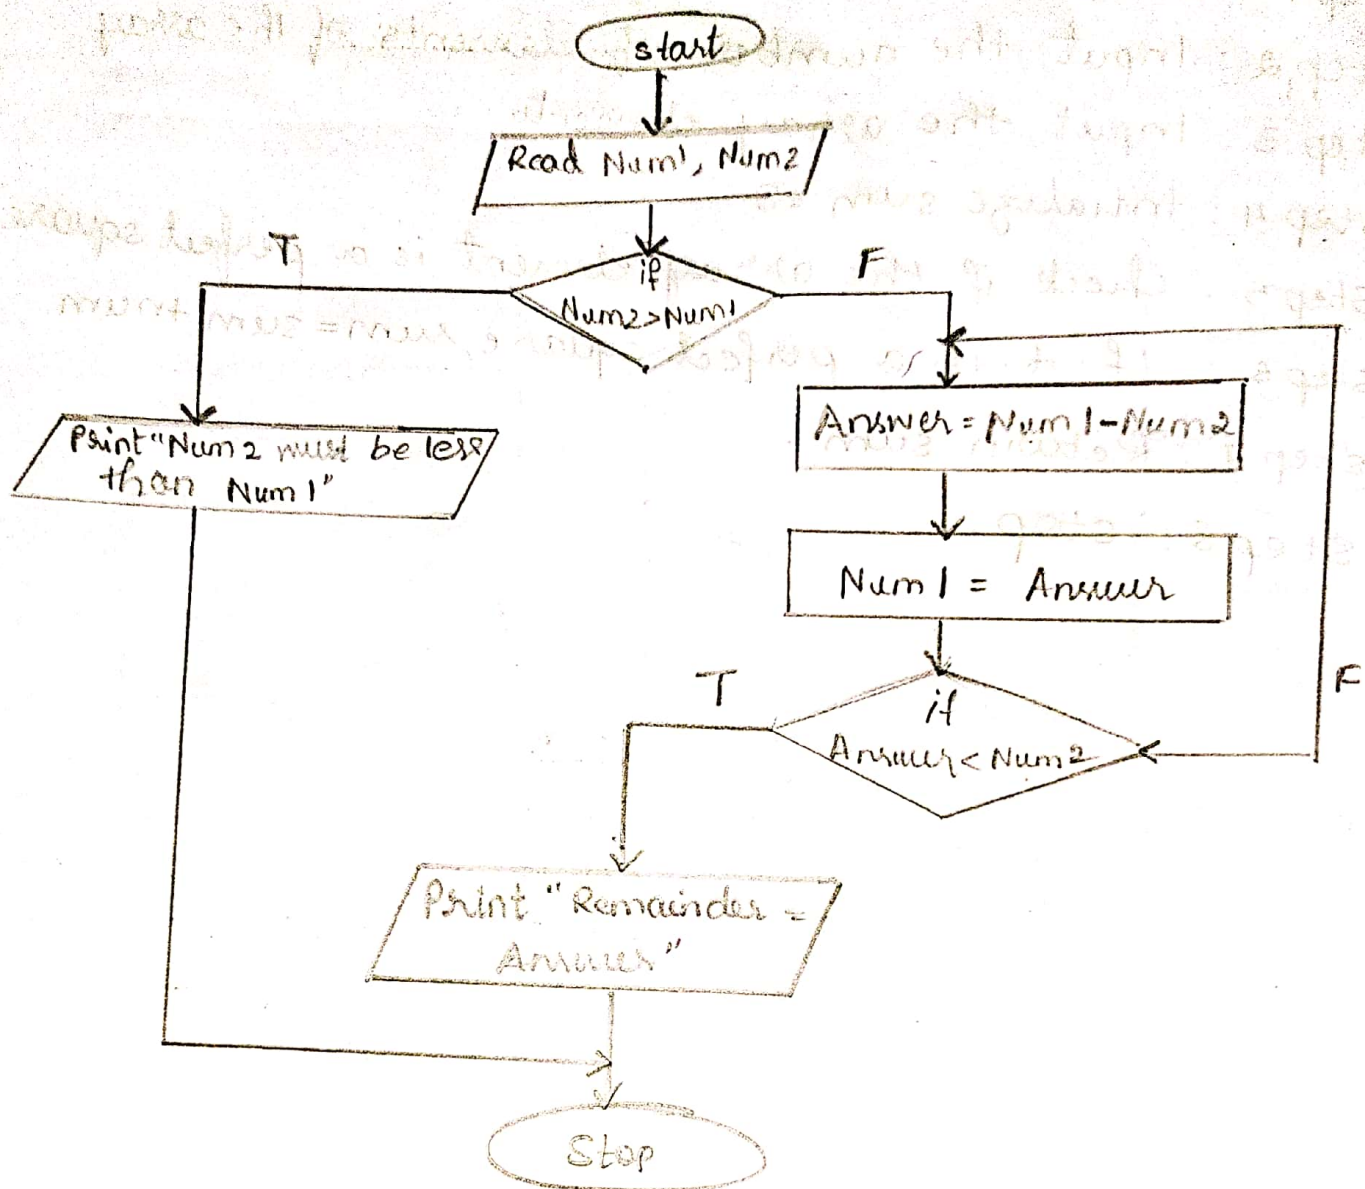 start
Read Num1, Num2
T
if
Num2>Num1
F
Print "Num2 must be less
than Num1"
Answer = Num1-Num2
Num1 = Answer
T
if
Answer < Num2
F
Print "Remainder =
Answer"
Stop